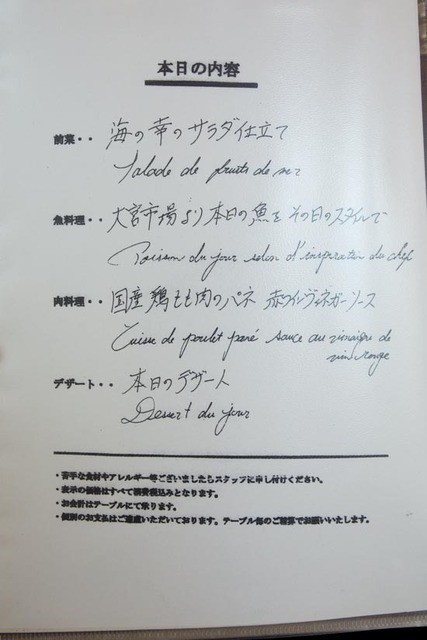 本日の内容
前菜・・ 海の幸のサラダ仕立て
Salade de fruits de mer
魚料理・・ 大宮市場より本日の魚を その日のスタイルで
Poisson du jour selon d'inspiration du chef
肉料理・・ 国産鶏もも肉のパネ 赤ワインヴィネガーソース
Cuisse de poulet pané sauce au vinaigre de
vin rouge
デザート・・ 本日のデザート
Dessert du jour
・苦手な食材やアレルギー等ございましたらスタッフに申し付けください。
・表示の価格はすべて消費税込みとなります。
・お会計はテーブルにて承ります。
・個別のお支払はご遠慮いただいております。テーブル毎のご精算でお願いいたします。